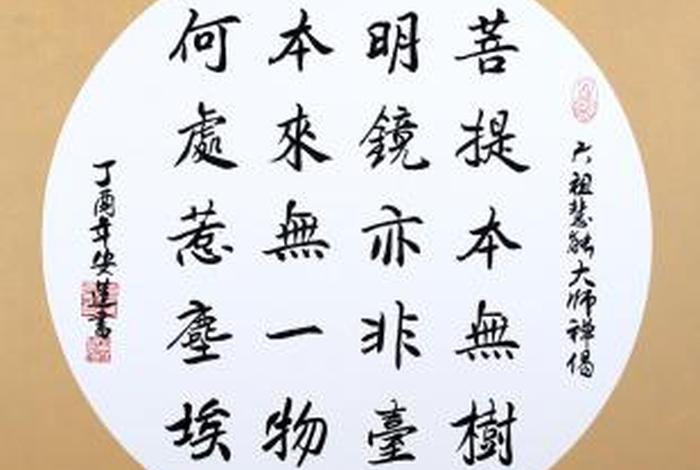 六祖慧能大师禅偈
菩提本無樹
明鏡亦非臺
本來無一物
何處惹塵埃
丁酉年安蓮書